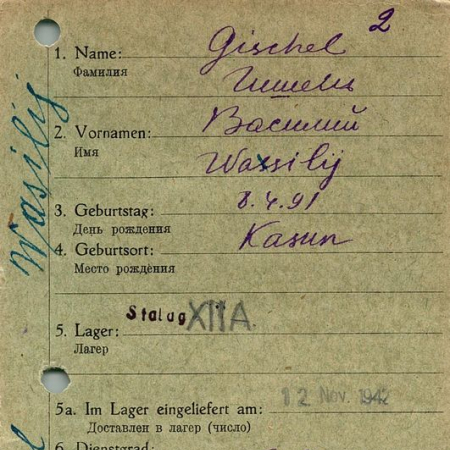 2
1. Name: Gischel
Фамилия Гишель
2. Vornamen: Василий
Имя Wassilij
3. Geburtstag: 8.4.91
День рождения
4. Geburtsort: Kasun
Место рождения
Stalag XIIA.
5. Lager:
Лагер
5a. Im Lager eingeliefert am: 12 Nov. 1942
Доставлен в лагер (число)
6. Dienstgrad:
Wasilij